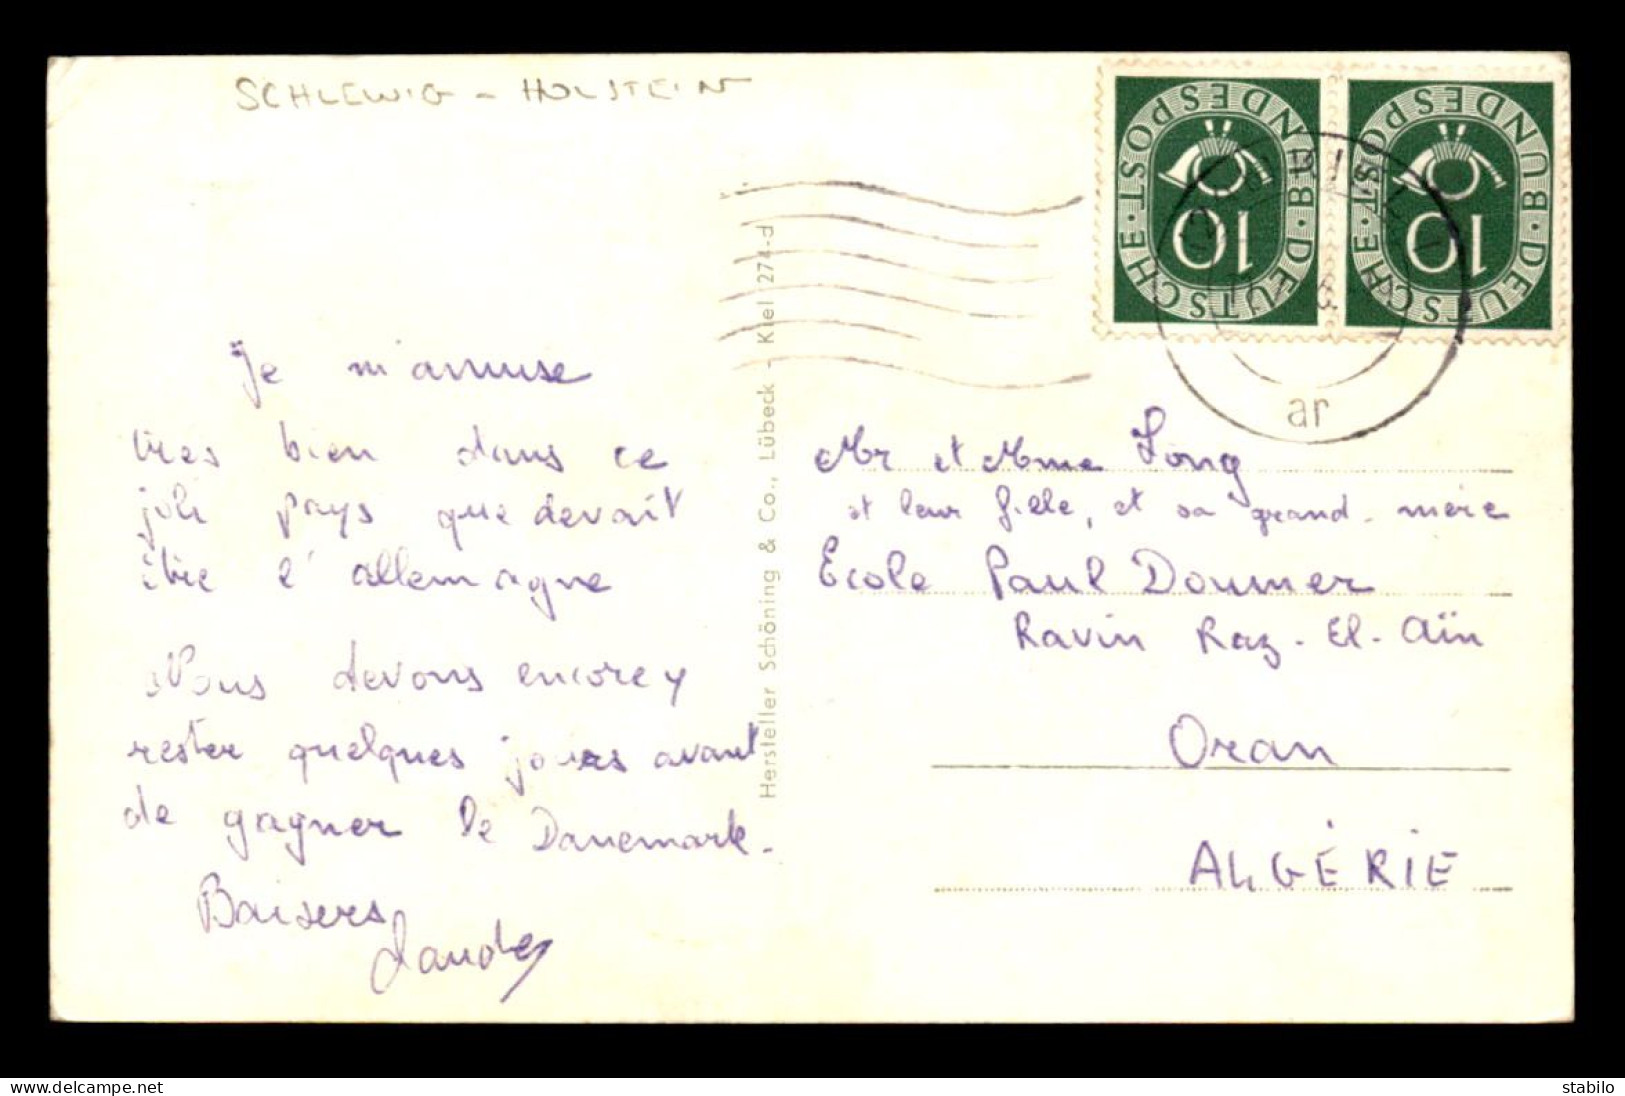 SCHLEWIG - HOLSTEIN
DEUTSCHE · BUNDESPOST ·
10
DEUTSCHE · BUNDESPOST ·
10
ar
Je m'amuse
tres bien dans ce
joli pays que devait
être l'allemagne
Nous devons encore y
rester quelques jours avant
de gagner le Danemark.
Baisers
Hersteller Schöning & Co., Lübeck - Kiel 274-d
Mr et Mme Long
et leur fille, et sa grand-mère
Ecole Paul Doumer
Ravin Raz-El-Aïn
Oran
ALGÉRIE
delcampe.net
stabilo